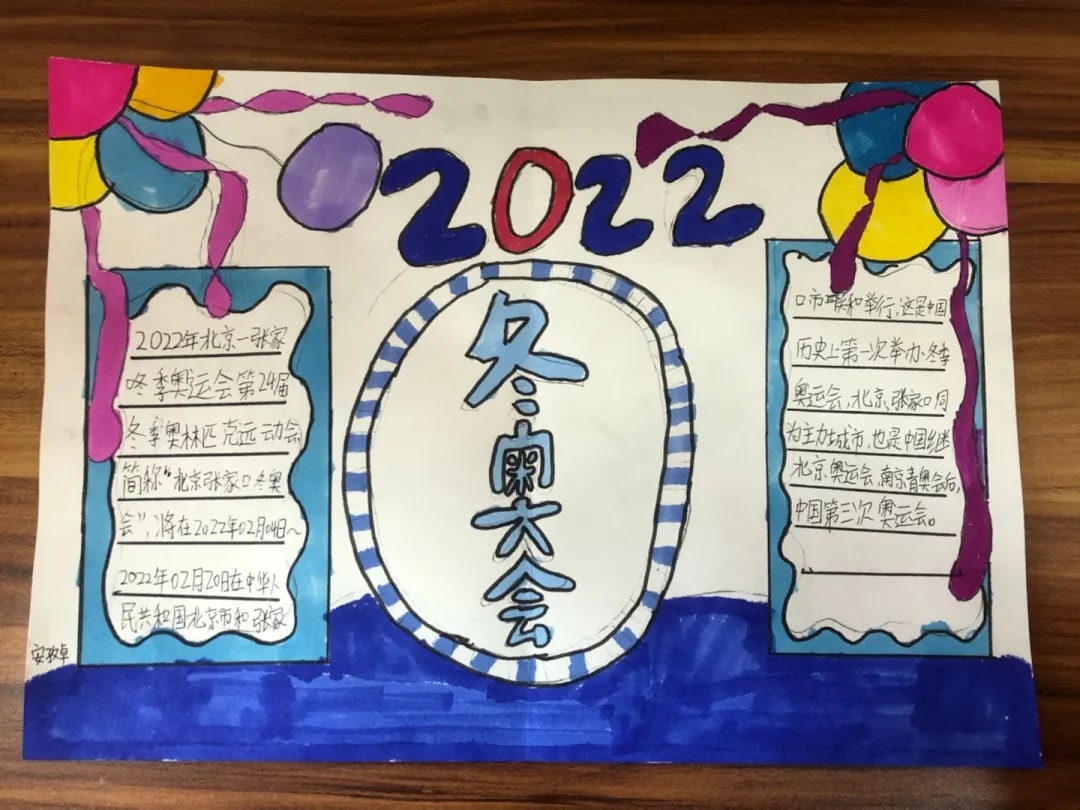 2022
冬
奥
大
会
2022年北京一张家
口冬季奥运会第24届
冬季奥林匹克运动会
简称“北京张家口冬奥
会”,将在2022年02月04日~
2022年02月20日在中华人
民共和国北京市和张家
口市联和举行,这是中国
历史上第一次举办冬季
奥运会,北京,张家口同
为主力城市,也是中国继
北京奥运会,南京青奥会后,
中国第三次奥运会。